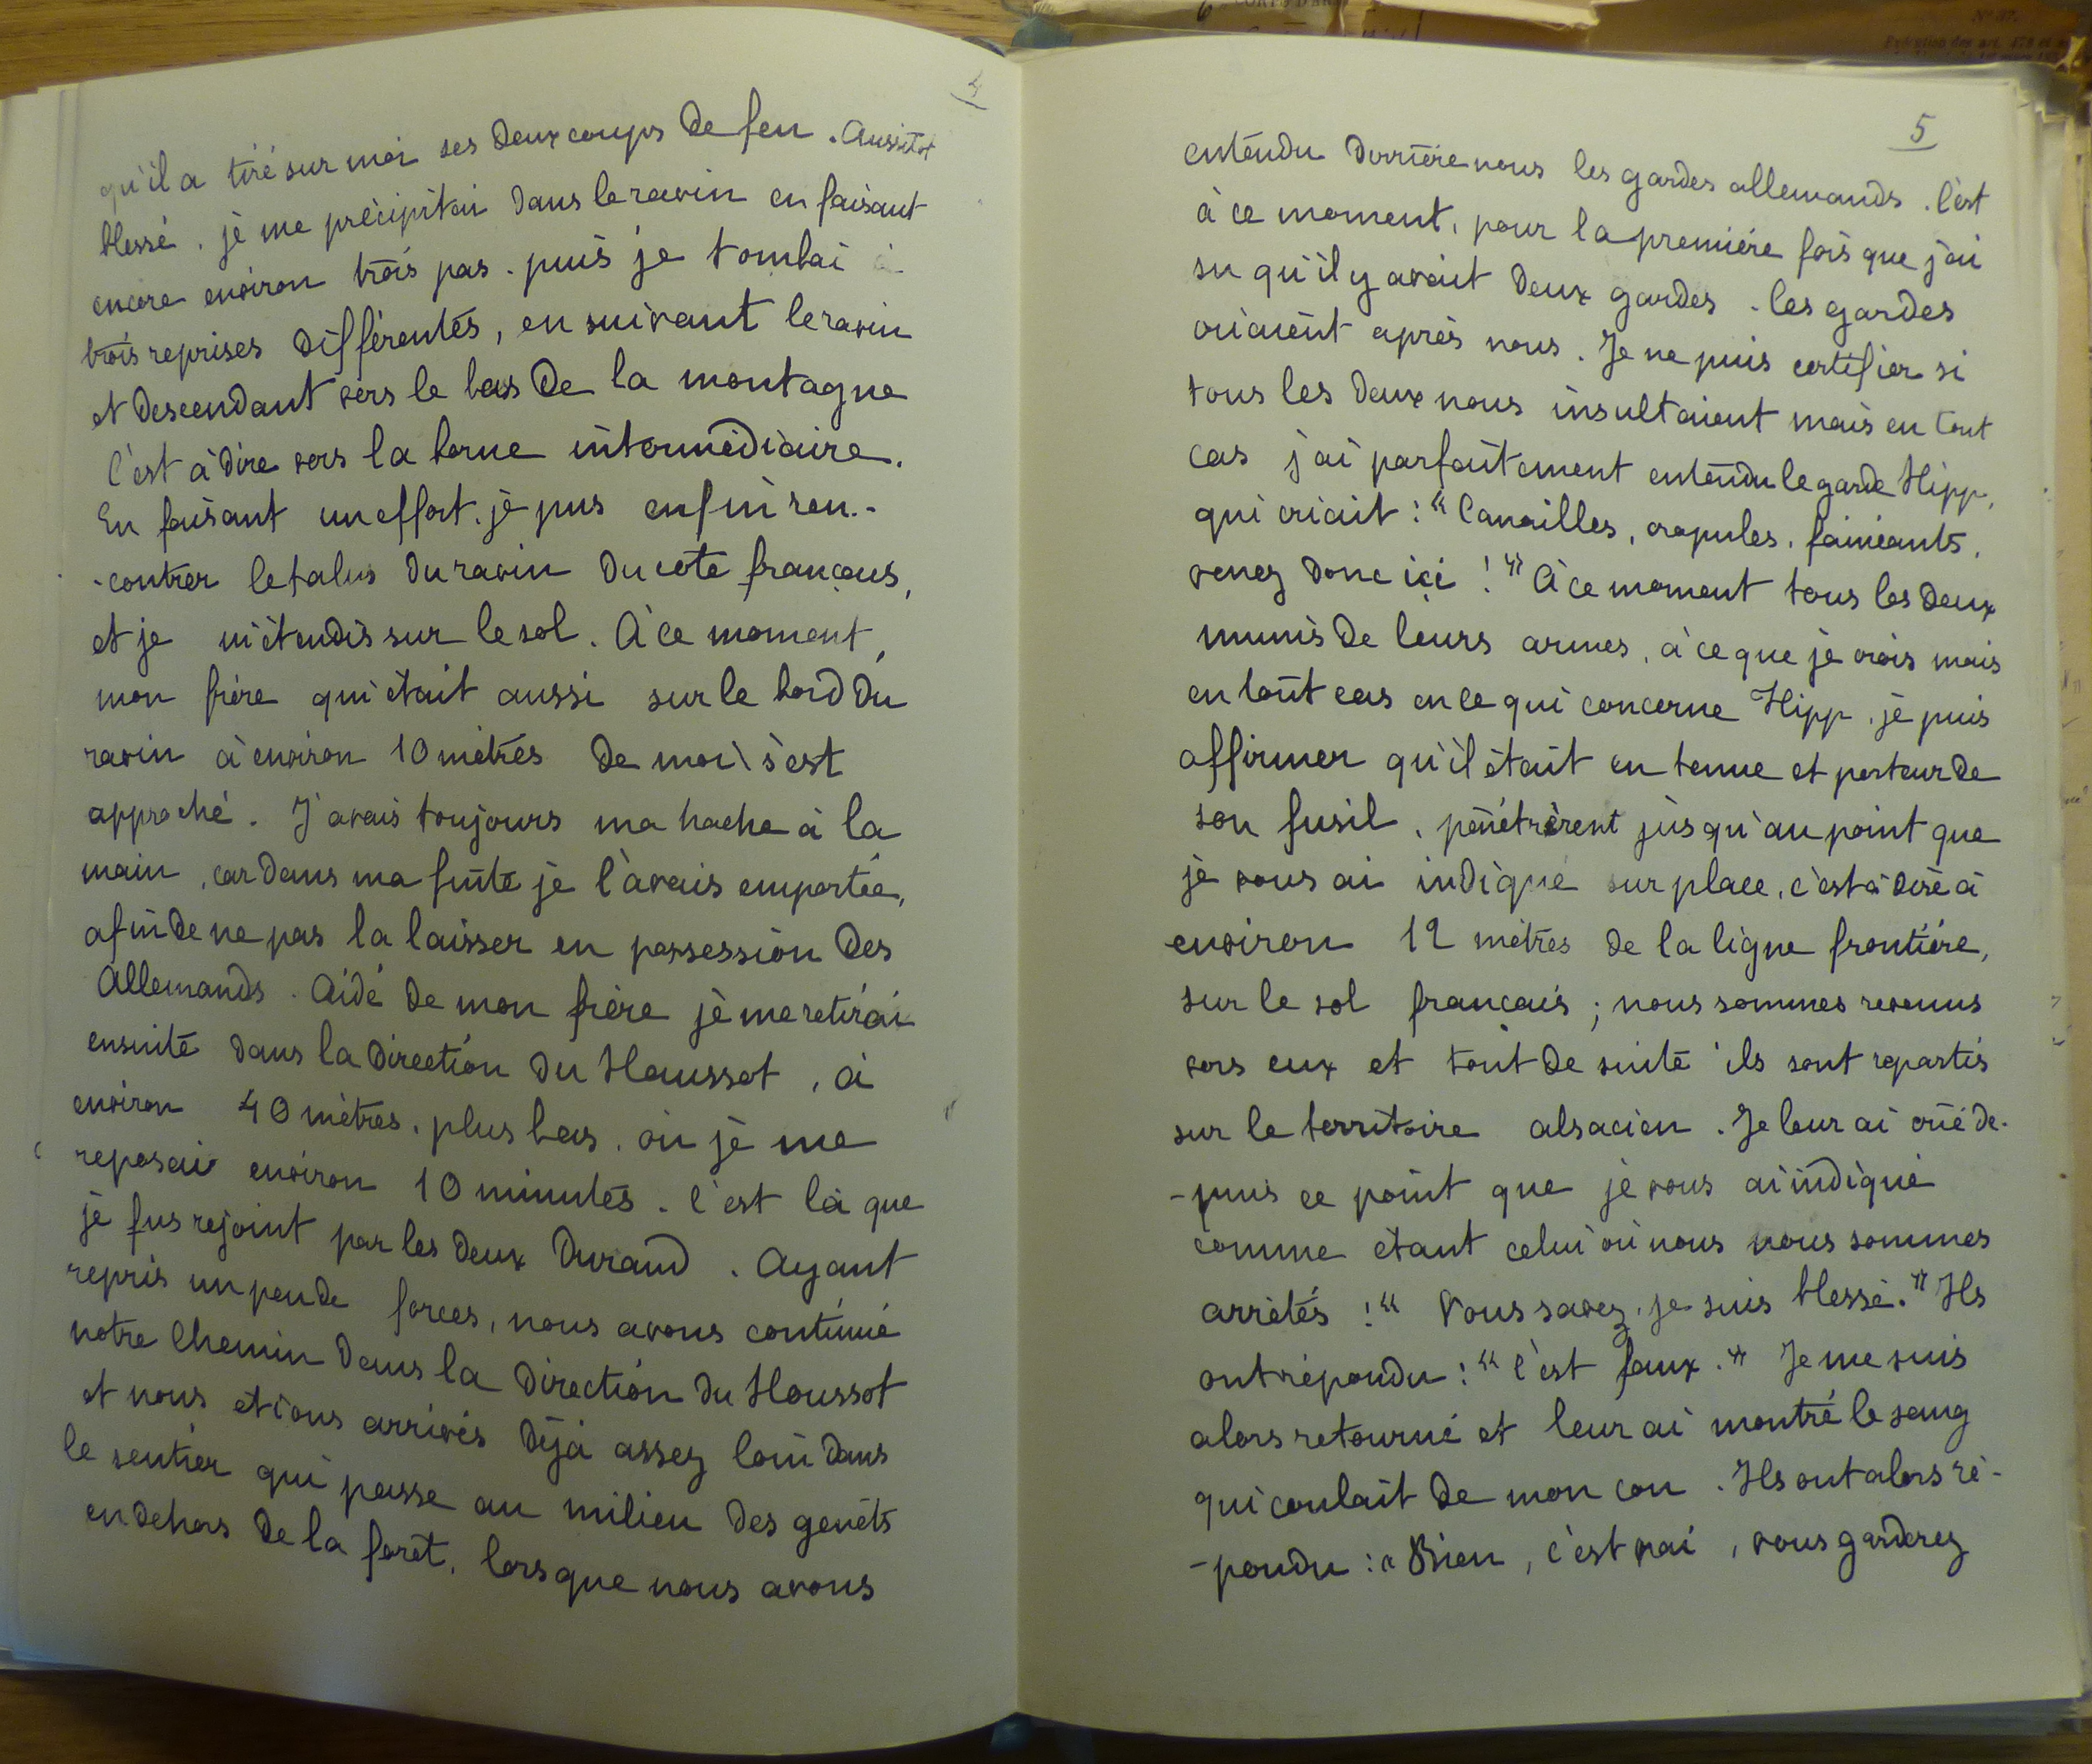 4
qu'il a tiré sur moi ses deux coups de feu. Aussitôt
blessé, je me précipitai dans le ravin en faisant
encore environ trois pas. puis je tombai à
trois reprises différentes, en suivant le ravin
et descendant vers le bas de la montagne
c'est à dire vers la borne intermédiaire.
En faisant un effort, je pus enfin ren-
-contrer le talus du ravin du coté français,
et je m'étendis sur le sol. A ce moment,
mon frère qui était aussi sur le bord du
ravin à environ 10 mètres de moi s'est
approché. J'avais toujours ma hache à la
main, car dans ma fuite je l'avais emportée,
afin de ne pas la laisser en possession des
Allemands. Aidé de mon frère je me retirai
ensuite dans la direction du Haussot, à
environ 40 mètres, plus bas, où je me
reposai environ 10 minutes. C'est là que
je fus rejoint par les deux Durand. Ayant
repris un peu de forces, nous avons continué
notre chemin dans la direction du Houssot
et nous etions arrivés déjà assez loin dans
le sentier qui passe au milieu des genêts
en dehors de la forêt, lorsque nous avons
5
entendu derrière nous les gardes allemands. C'est
à ce moment, pour la première fois que j'ai
su qu'il y avait deux gardes. les gardes
criaient après nous. Je ne puis certifier si
tous les deux nous insultaient mais en tout
cas j'ai parfaitement entendu le garde Hipp,
qui criait : "Canailles, crapules, fainéants,
venez donc ici !" A ce moment tous les deux
munis de leurs armes, à ce que je crois mais
en tout cas en ce qui concerne Hipp, je puis
affirmer qu'il était en tenue et porteur de
son fusil, pénétrèrent jusqu'au point que
je vous ai indiqué sur place, c'est à dire à
environ 12 mètres de la ligne frontière,
sur le sol français ; nous sommes revenus
vers eux et tout de suite ils sont repartis
sur le territoire alsacien. Je leur ai crié de-
-puis ce point que je vous ai indiqué
comme étant celui où nous nous sommes
arrêtés : "Vous savez, je suis blessé." Ils
ont répondu : "C'est faux." Je me suis
alors retourné et leur ai montré le sang
qui coulait de mon cou. Ils ont alors ré-
-pondu : "Bien, c'est vrai, vous garderez